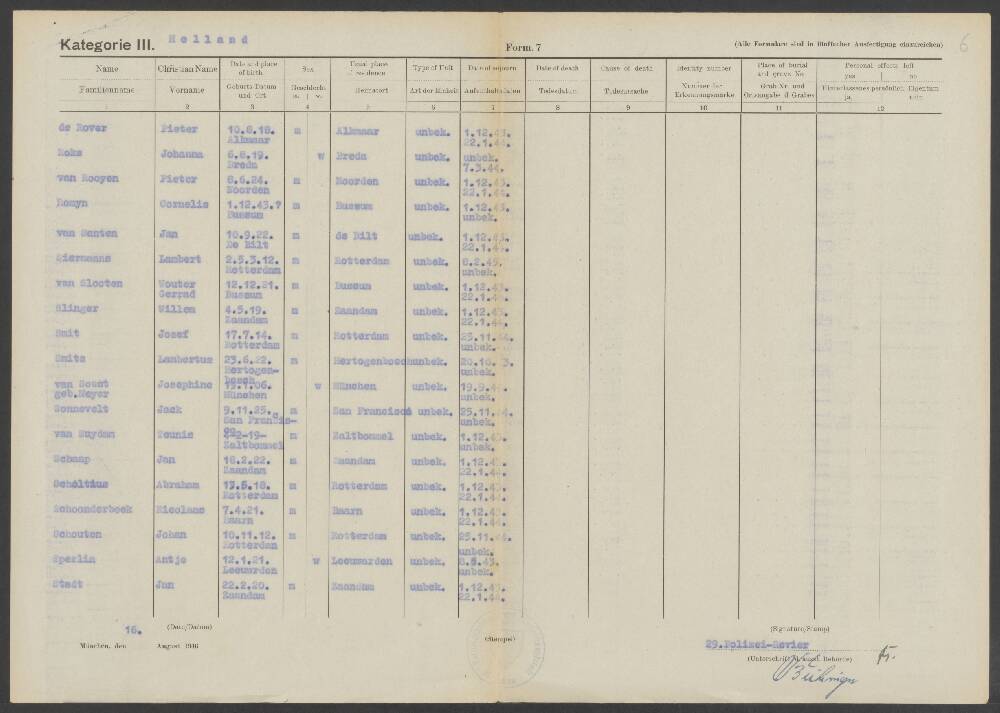 Kategorie III. Holland
Form. 7
(Alle Formulare sind in fünffacher Ausfertigung einzureichen)
6
Name Christian Name Date and place of birth Sex Usual place of residence Type of Unit Date of sojourn Date of death Cause of death Identity number Place of burial and grave No Personal effects left yes | no
Familienname Vorname Geburts-Datum und -Ort Geschlecht m. | w. Heimatort Art der Einheit Aufenthaltsdaten Todesdatum Todesursache Nummer der Erkennungsmarke Grab Nr. und Ortsangabe d. Grabes Hinterlassenes persönliches Eigentum ja nein
1 2 3 4 5 6 7 8 9 10 11 12
de Rover Pieter 10.8.18. m Alkmaar unbek. 1.12.43.
Alkmaar 22.1.44.
Johanna 6.8.19. w Breda unbek. unbek.
Breda 7.3.44.
van Rooyen Pieter 8.6.24. m Noorden unbek. 1.12.43.
Noorden 22.1.44.
Romyn Cornelis 1.12.43.? m Bussum unbek. 1.12.43.
Bussum unbek.
van Santen Jan 10.9.22. m de Bilt unbek. 1.12.43.
De Bilt 22.1.44.
Siermans Lambert 2.5.3.12. m Rotterdam unbek. 8.2.45.
Rotterdam unbek.
van Slooten Wouter 12.12.21. m Bussum unbek. 1.12.43.
Gerrad Bussum 22.1.44.
Slinger Willem 4.5.19. m Zaandam unbek. 1.12.43.
Zaandam 22.1.44.
Smit Josef 17.7.14. m Rotterdam unbek. 25.11.44.
Rotterdam unbek.
Smits Lambertus 23.6.22. m Hertogenbosch unbek. 20.10. 3.
Hertogen- unbek.
bosch
van Soest Josephine 19.1.06. w München unbek. 19.9.44.
geb.Meyer München unbek.
Sonnevelt Jack 9.11.25. m San Francisco unbek. 25.11.44.
San Francis- unbek.
co
van Suydam Teunis 2-2-19- m Zaltbommel unbek. 1.12.43.
Zaltbommel unbek.
Schaap Jan 18.2.22. m Zaandam unbek. 1.12.43.
Zaandam 22.1.44.
Scholtius Abraham 13.5.18. m Rotterdam unbek. 1.12.43.
Rotterdam 22.1.44.
Schoonderbeek Nicolaas 7.4.21. m Baarn unbek. 1.12.43.
Baarn 22.1.44.
Schouten Johan 10.11.12. m Rotterdam unbek. 25.11.44.
Rotterdam unbek.
Sperlin Antje 12.1.21. w Leeuwarden unbek. 8.5.43.
Leeuwarden unbek.
Stadt Jan 22.2.20. m Zaandam unbek. 1.12.43.
Zaandam 22.1.44.
16. (Date/Datum)
München, den August 1946
(Stempel)
(Signature/Stamp)
29.Polizei-Revier
(Unterschrift d. ausst. Behörde)